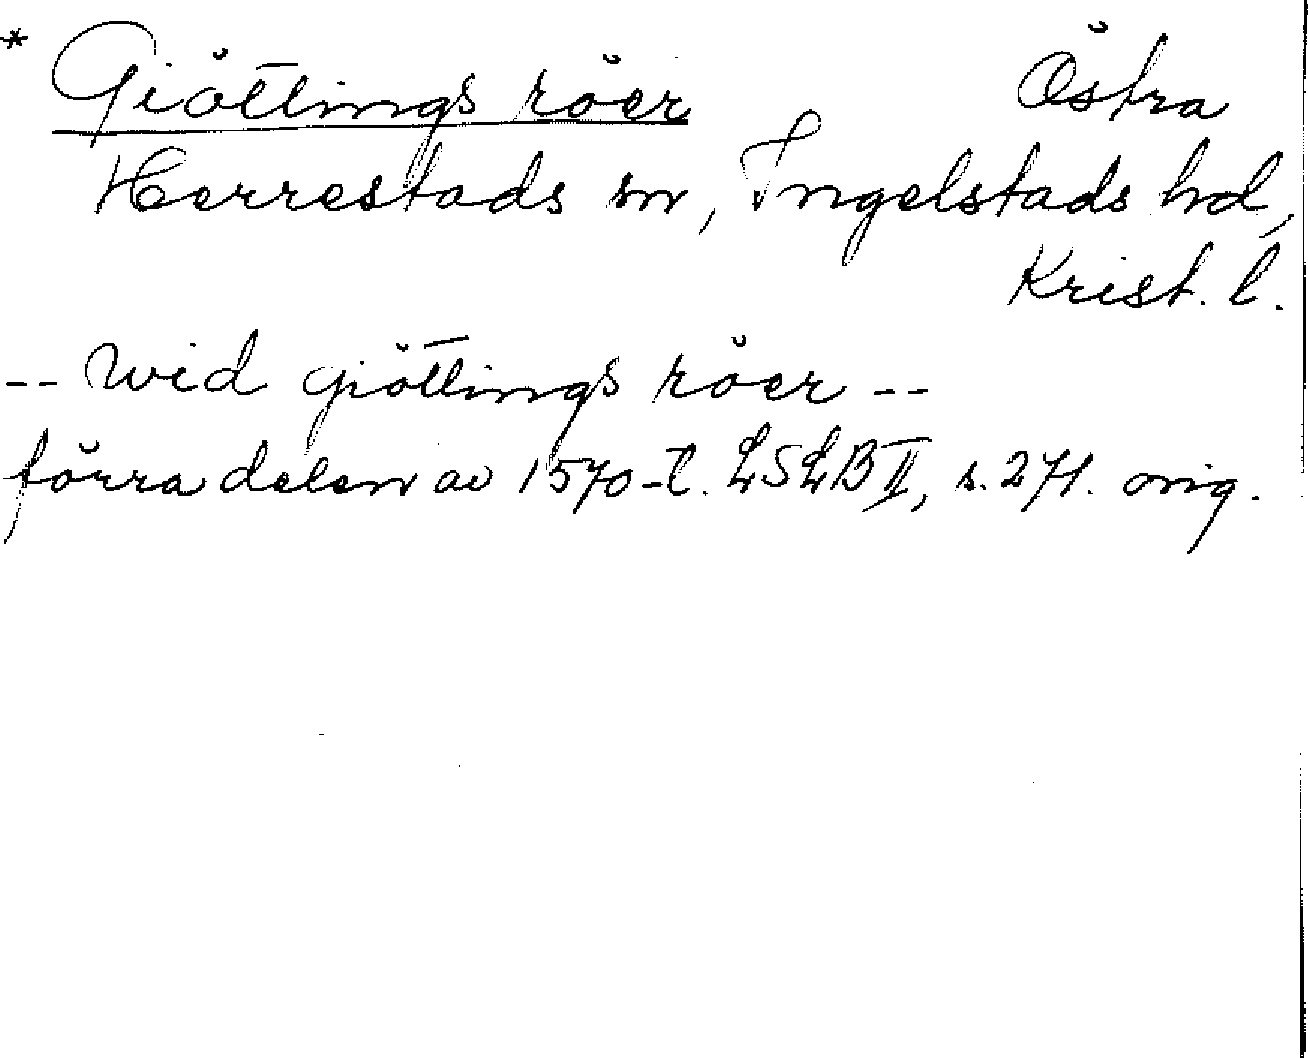 * Giöttings röer Östra
Herrestads sn, Ingelstads hd,
Krist. l.
-- wid giöttings röer --
förra delen av 1570-t. LSLB II, s. 271. orig.